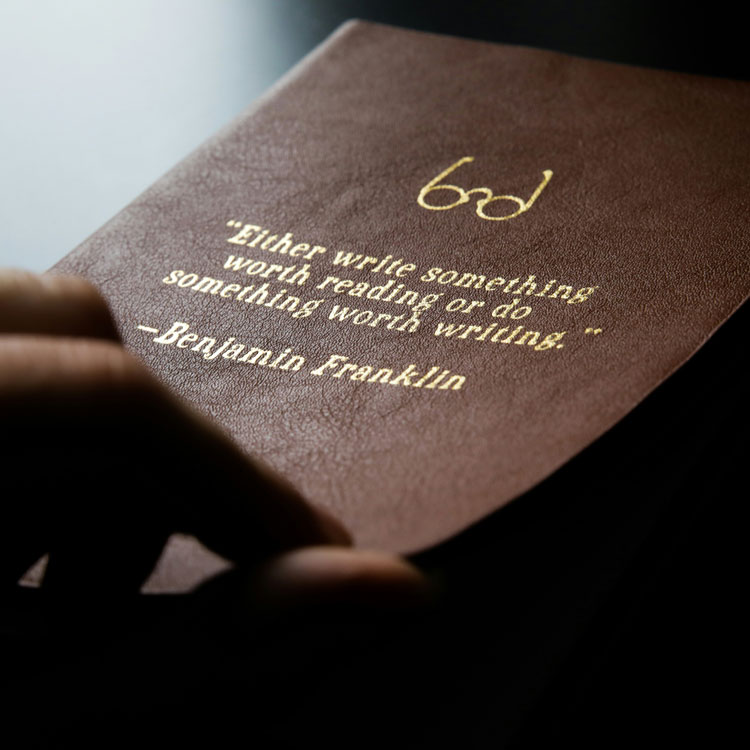 “Either write something
worth reading or do
something worth writing. “
—Benjamin Franklin